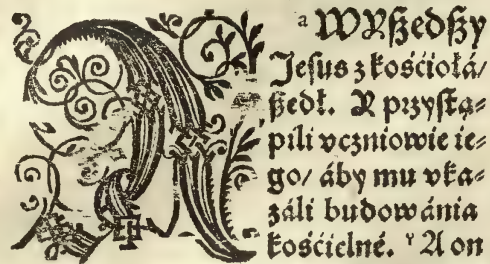 A
a WYßedßy
Jesus z kośćiołá/
ßedł. Y przystą=
pili vczniowie ie=
go/ áby mu vka=
záli budowánia
kośćielné. Y A on